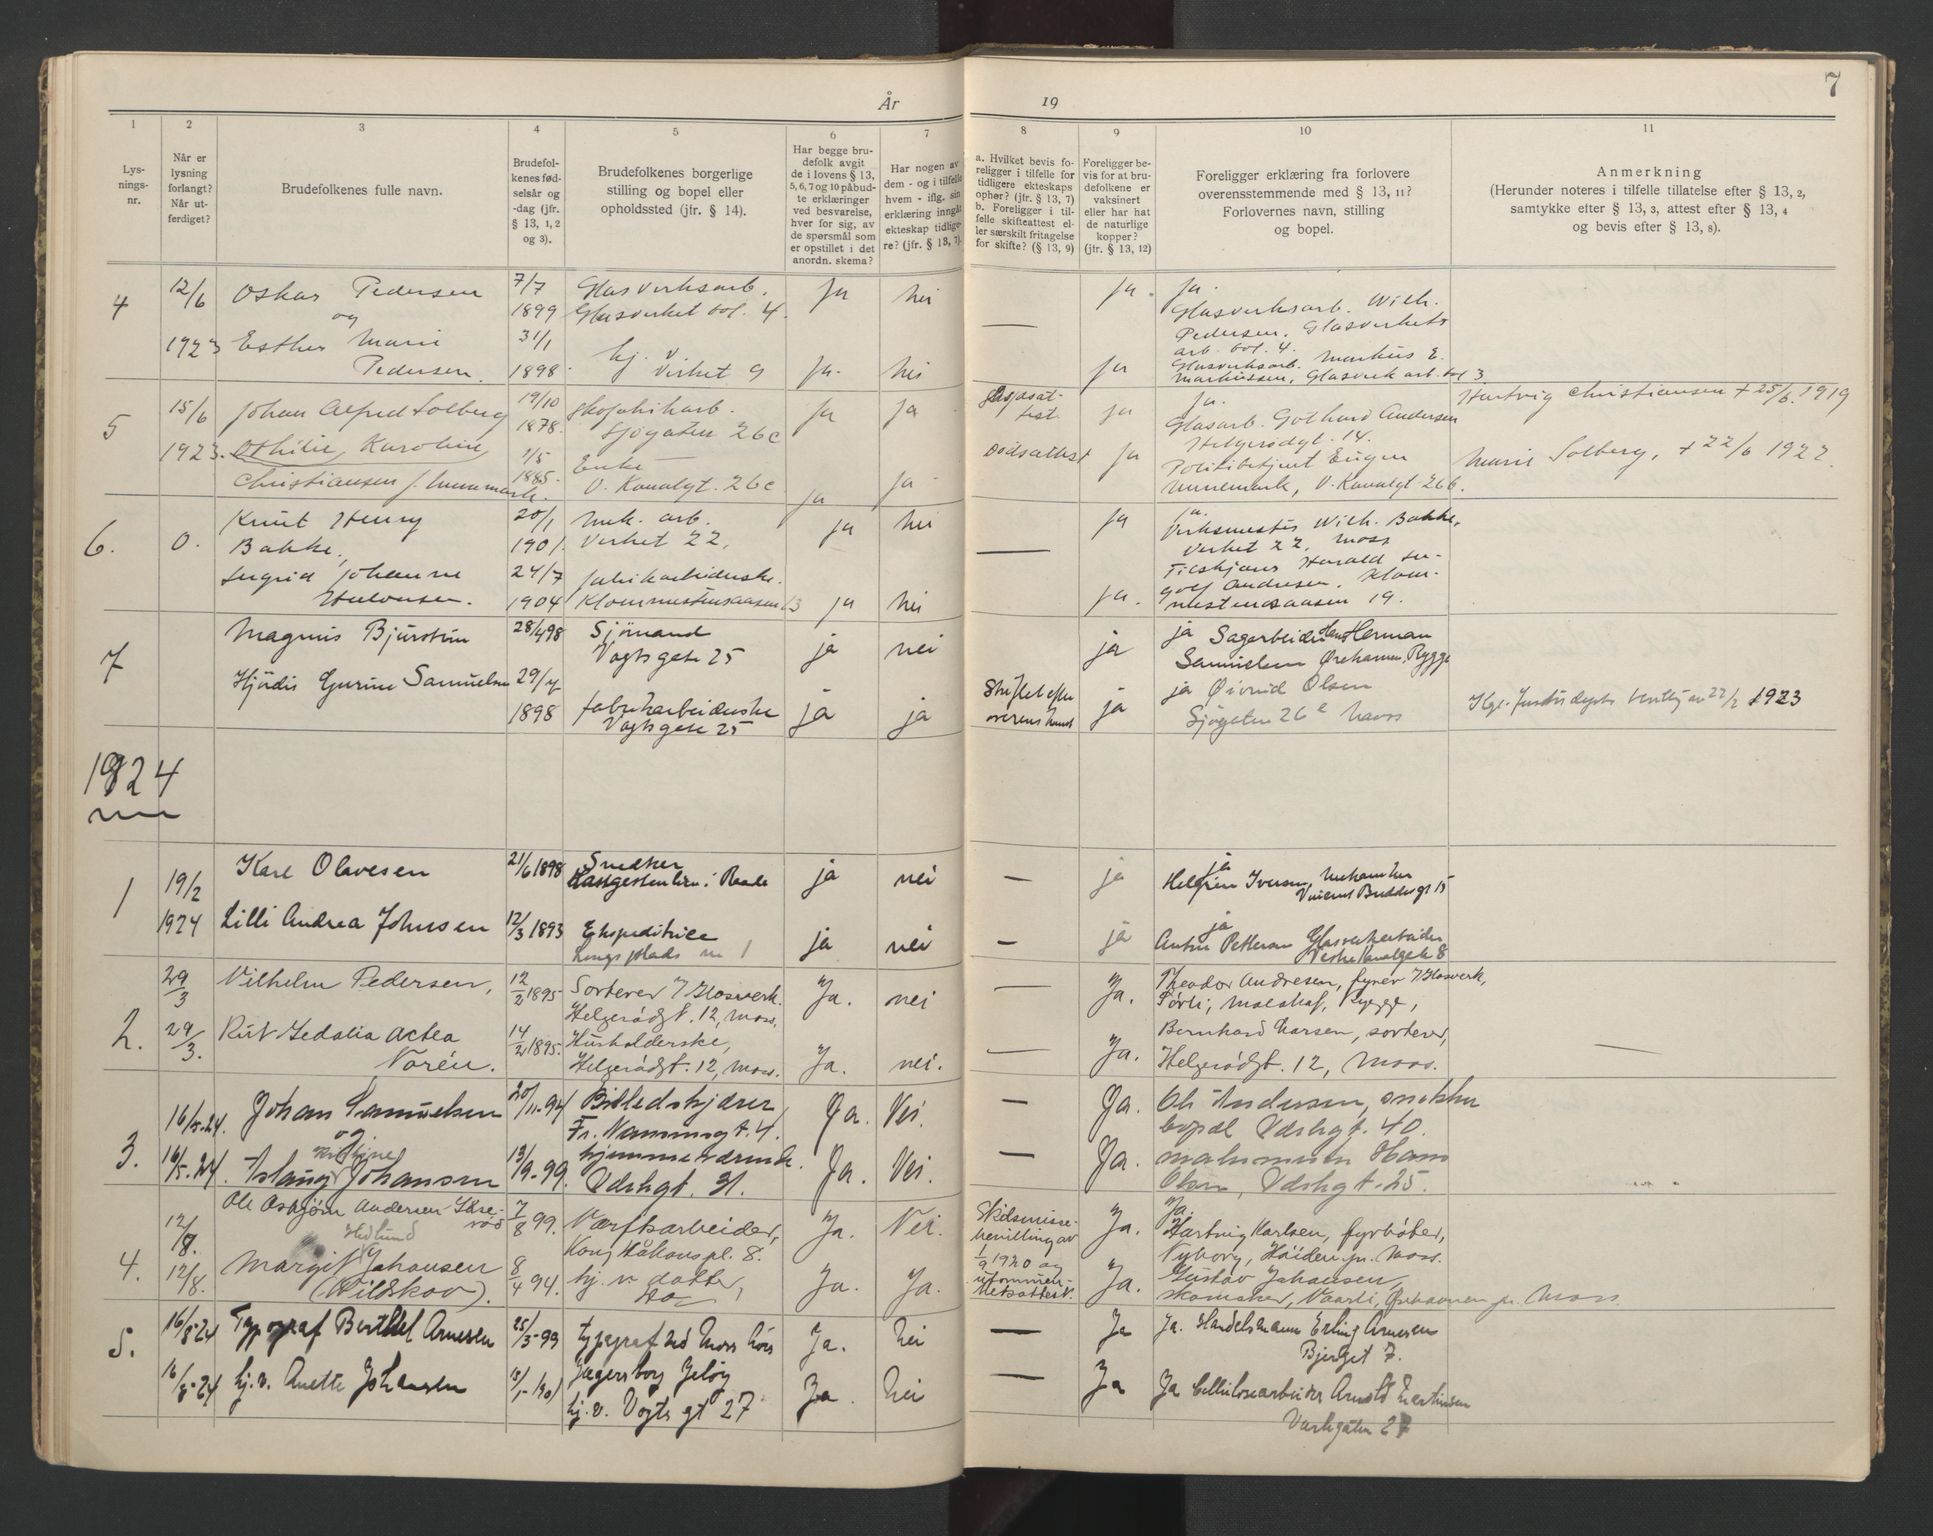 År 19
7
1 2 3 4 5 6 7 8 9 10 11
Lys-
nings-
nr.
Når er
lysning
forlangt?
Når ut-
ferdiget?
Brudefolkenes fulle navn.
Brudefol-
kenes fød-
selsår og
-dag (jfr.
§ 13, 1, 2
og 3).
Brudefolkenes borgerlige
stilling og bopel eller
opholdssted (jfr. § 14).
Har begge bru-
defolk avgit
de i lovens § 13,
5, 6, 7 og 10 påbud-
te erklæringer
ved besvarelse,
hver for sig, av
de spørsmål som
er opstillet i det
anordn. skema?
Har nogen av
dem - og i tilfelle
hvem - iflg. sin
erklæring inngått
ekteskap tidlige-
re? (jfr. § 13, 7).
a. Hvilket bevis fo-
religger i tilfelle for
tidligere ekteskaps
ophør? (jfr. § 13, 7)
b. Foreligger i til-
felle skifteattest el-
ler særskilt fritagelse
for skifte? (§ 13, 9)
Foreligger be-
vis for at bru-
defolkene er
vaksinert
eller har hat
de naturlige
kopper?
(jfr. § 13, 12)
Foreligger erklæring fra forlovere
overensstemmende med § 13, 11?
Forlovernes navn, stilling
og bopel.
Anmerkning
(Herunder noteres i tilfelle tillatelse efter § 13, 2,
samtykke efter § 13, 3, attest efter § 13, 4
og bevis efter § 13, 8).
4 12/6 Oskar Pedersen 7/7 Glasverksarb. Ja nei — Ja. Ja.
og 1899 Glasverket bol. 4. Glasverksarb. Wilh.
Pedersen, Glasverkets
1923 Esther Marie 31/1 hj. v. arb. bol. 4.
Pedersen. 1898 Verket 9 Ja. nei Ja Glasverksarb. Markus E.
Markussen, Glasverk arb. bol 3
5 15/6 Johan Alfred Solberg 19/10 Skofabrikarb. Ja Ja Ja Ja. Hartvig Christiansen + 25/6. 1919
1878. Sjøgaten 26c Glasarb. Gothard Andersen
1923. Othilie Karoline 1/5 Enke Dødsattest Ja Helgerødgt. 14.
Christiansen f. Unnemark. 1885. V. Kanalgt. 26c Ja Ja Politibetjent Eugen Marie Solberg, + 22/6 1922.
Unnemark, V. Kanalgt 26b.
6. 0. Knut Henry 20/1 Mek. arb. Ja nei — Ja Ja.
Bakke, 1901. Verket 22, Verksmester Wilh. Bakke,
Verket 22, Moss
Ingrid Johanne 24/7 Fabrikarbeiderske. Harald
1904 Ja nei Ja. Andresen. 19.
7 Magnus Bjurström 28/4 98 Sjömand ja nei ja ja Sagarbeider Hans Herman
Vogtsgate 25 Samuelsen Ørehavnen, Rygge
Hjördis Gurine Samuelsen 29/7 fabrikarbeiderske ja ja Skiftet efter ja ja Øivind Olsen
1898 Vogtsgate 25 overenskomst Sjøgaten 26c Moss 22/2 1923
1924
1 19/2 Karl Olavesen 21/6 1898 Snedker ja nei — ja ja
i Raade Helgrim Iversen,
1924 Lilli Andrea Johnsen 12/3 1893 Ekspeditrice ja nei — ja ja
Anton Pettersen Glasverkarbeider
8
2. 29/3 Vilhelm Pedersen, 12/2 1895 Sorterer Glasverk. Ja. nei — Ja. Theodor Andresen, fyrer Glasverk,
Helgerødgt. 12, Moss. Rygge,
29/3. Rut Sedalia Actea 14/2 1895. Husholderske, Ja. nei. — Ja. Bernhard Larsen, sorterer,
Norén. Helgerødgt. 12, Moss. Helgerødgt. 12, Moss. —
3. 16/5-24. Johan Samuelsen 20/11-94 Billedskjærer Ja. Nei. — Ja. Ole Andersen, snekker
og Fr. Nannsensgt. 4. bopæl Vdskgt. 40.
16/5-24. Aslaug Kristine Johansen 13/9-99. hjemmeværende. Ja. Nei. — Ja. malermester Hans
Vdskgt. 31. Olsen, Vdskgt. 25.
4. 12/8. Ole Asbjørn Andersen 7/8 99. Værftsarbeider, Ja. Nei. Skilsmisse- Ja. Ja.
Hedlund Kong Håkonspl. 8. bevilling av Hartvig Karlsen, fyrbøter,
12/8. Margit Johansen 8/4 94. hj. v. datter, Ja. Ja. 1/9 1920 og Ja. Nyborg, Høiden pr. Moss.
(Vildskov). Gustav Johansen,
skomaker, Vaarli, Ørehavnen pr. Moss.
5. 16/8-24 Typograf Berthel Arnesen 25/3-99 Typograf ved Moss Avis Ja. Nei — Ja Ja. Handelsmann Erling Arnesen
Jægersborg Jeløy Bjerget 7.
16/8-24 hj. v. Anette Johansen hj. v. Vogts gt 27 Ja. Nei — Ja Ja Cellulosearbeider Arnold Martinsen
Værlegaten 27